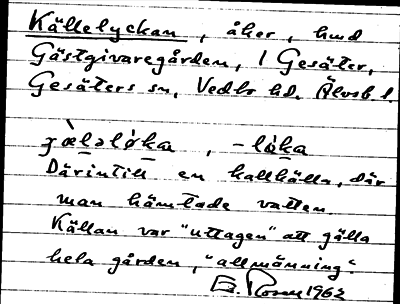 Källelyckan, åker, hmd
Gästgivaregården, 1 Gesäter,
Gesäters sn, Vedbo hd. Älvsb l.
ʒæ̀lələ̀ka, -lə̀ka
Därintill en kallkälla, där
man hämtade vatten.
Källan var "uttagen" att gälla
hela gården, "allmänning".
E. Rosen 1962